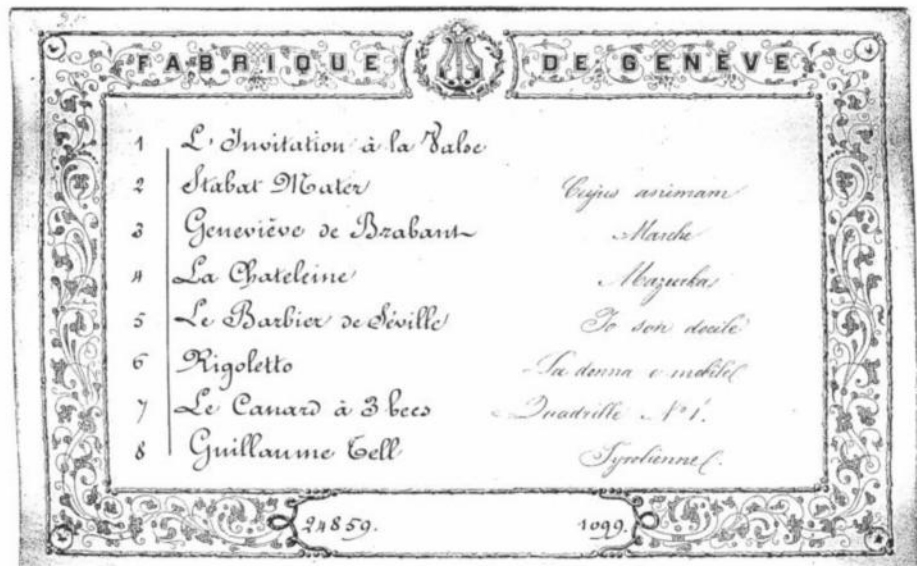 FABRIQUE DE GENÈVE
1 L'Invitation à la Valse
2 Stabat Mater Cujus animam
3 Geneviève de Brabant Marche
4 La Chateleine Mazurka
5 Le Barbier de Séville Io son docile
6 Rigoletto La donna e mobile
7 Le Canard à 3 becs Quadrille Nº 1.
8 Guillaume Tell Tyrolienne.
24859. 1099.